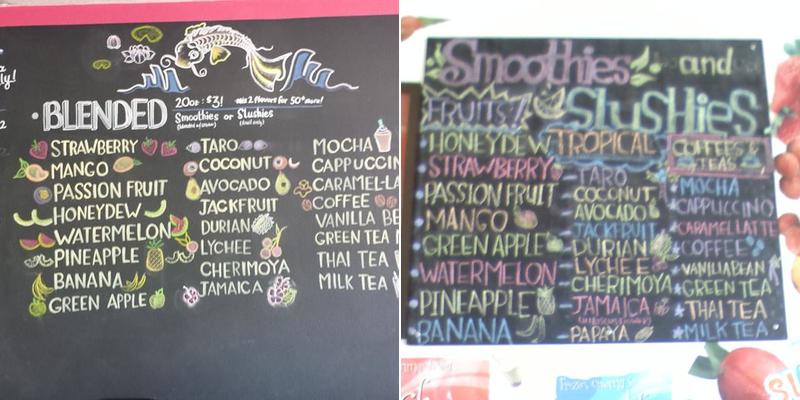 • BLENDED
20oz: $3! mix 2 flavors for 50¢ more!
Smoothies or Slushies
(blended w/cream) (fruit only)
STRAWBERRY
MANGO
PASSION FRUIT
HONEYDEW
WATERMELON
PINEAPPLE
BANANA
GREEN APPLE
TARO
COCONUT
AVOCADO
JACKFRUIT
DURIAN
LYCHEE
CHERIMOYA
JAMAICA
MOCHA
CAPPUCCIN
CARAMEL-LA
COFFEE
VANILLA BE
GREEN TEA
THAI TEA
MILK TEA
Smoothies and
Slushies
FRUITS!
HONEYDEW
STRAWBERRY
PASSION FRUIT
MANGO
GREEN APPLE
WATERMELON
PINEAPPLE
BANANA
TROPICAL
TARO
COCONUT
AVOCADO
JACKFRUIT
DURIAN
LYCHEE
CHERIMOYA
JAMAICA
PAPAYA
COFFEES &
TEAS
MOCHA
CAPPUCCINO
CARAMEL LATTE
COFFEE
VANILLA BEAN
GREEN TEA
THAI TEA
MILK TEA